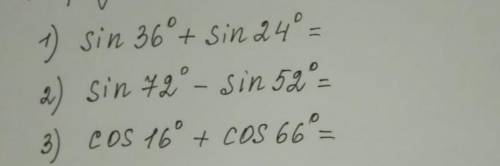 1) sin 36° + sin 24° =
2) sin 72° - sin 52° =
3) cos 16° + cos 66° =